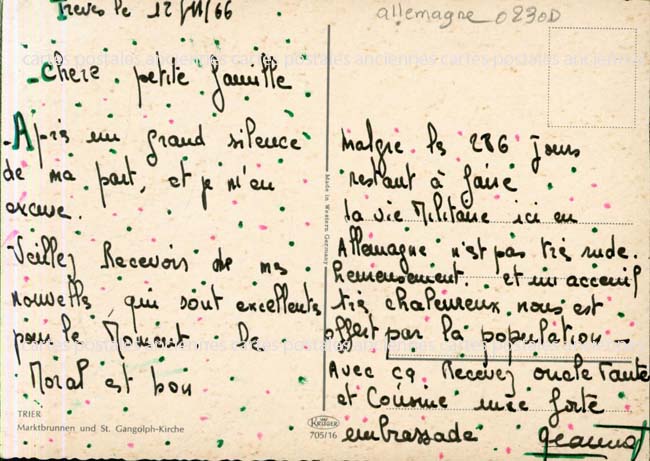 Treves le 12/VII/66
allemagne 0230D
- Chere petite famille
- Après un grand silence
de ma part, et je m'en
excuse.
- Veillez Recevoir de mes
nouvelles, qui sont excellentes
pour le Moment. Le
Moral est bon
malgré les 286 Jours
restant à faire
La vie Militaire ici en
Allemagne n'est pas très rude.
Remeusement. et un acceuil
très chaleureux nous est
offert par la population -
Avec ça. Recevez oncle Tante
et Cousine une forte
embrassade Jeannot
TRIER
Marktbrunnen und St. Gangolph-Kirche
Made in Western Germany
KRÜGER
705/16
cartes postales anciennes cartes postales anciennes cartes postales anciennes
cartes postales anciennes cartes postales anciennes cartes postales anciennes